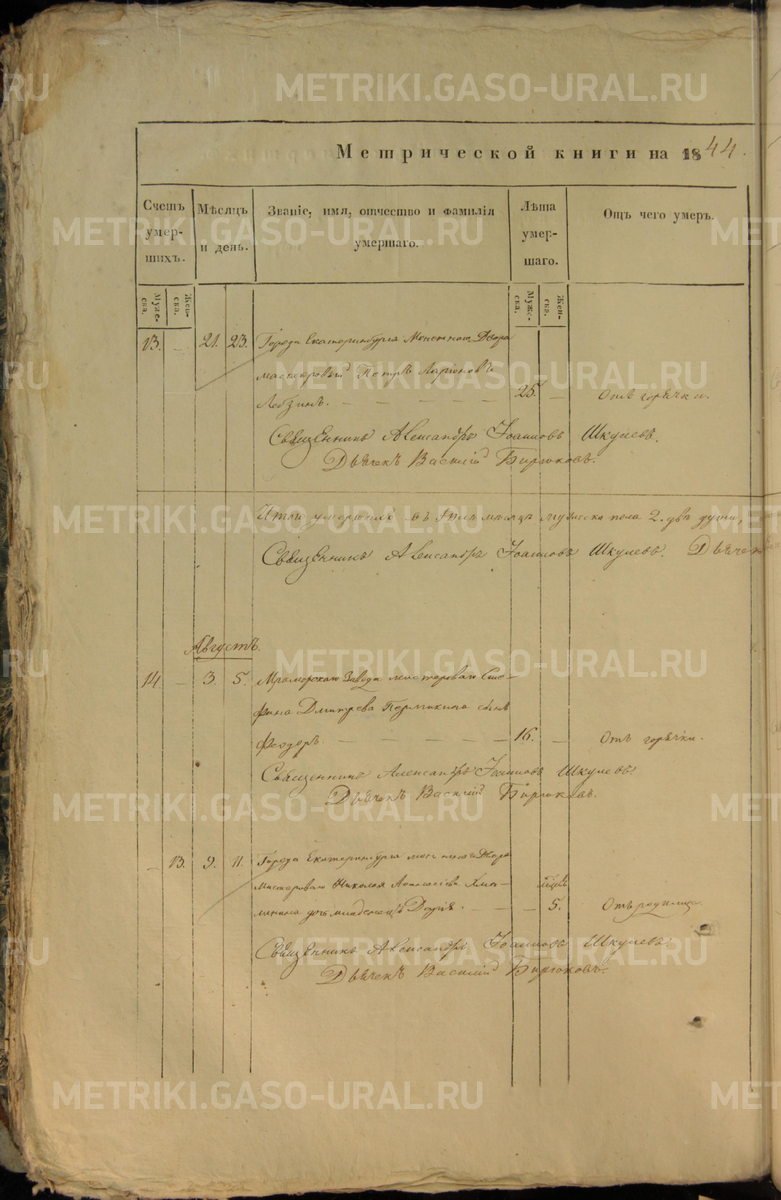 Метрической книги на 1844.
Счетъ умер-шихъ. Мѣсяцъ и день. Званіе, имя, отчество и фамилія умершаго. Лѣта умер-шаго. Отъ чего умеръ.
Муже-ска. Жен-ска. Муже-ска. Жен-ска.
13. – 21. 23. Города Екатеринбурга Монетнаго Двора
мастеровый Петръ Ларіоновъ
25. – Отъ горячки.
Священникъ Александръ Іоанновъ Шкулевъ.
Дьячекъ Василій Бирюковъ.
Итого умершихъ въ мѣсяцѣ мужеска пола 2. двѣ души,
Священникъ Александръ Іоанновъ Шкулевъ. Дьячек
Августъ.
14. – 3. 5. Мраморскаго Завода мастероваго
Дмитрева сынъ
Феодоръ 16. – Отъ горячки.
Священникъ Александръ Іоанновъ Шкулевъ.
Дьячекъ Василій Бирюковъ.
– 13. 9. 11. Города Екатеринбурга монетнаго Двора
мастероваго Николая
дочь младенецъ Дарія. – – 5. Отъ родимца.
Священникъ Александръ Іоанновъ Шкулевъ.
Дьячекъ Василій Бирюковъ.
METRIKI.GASO-URAL.RU